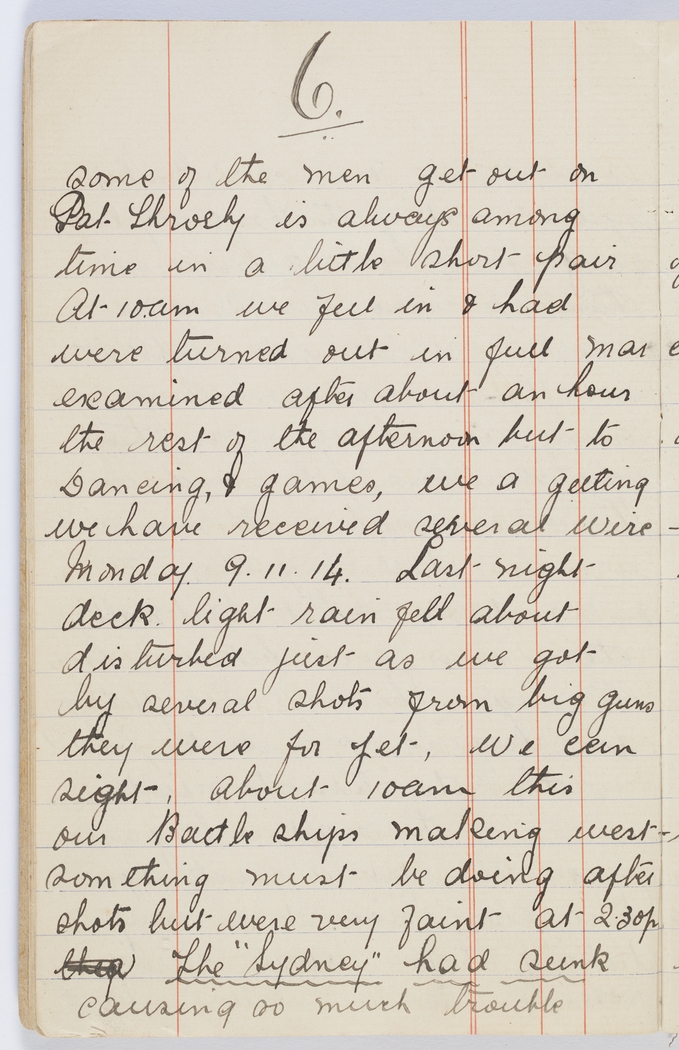 6.
some of the men get out on
Pat Throsby is always among
time in a little short pair
At 10am we fell in & had
were turned out in full mar
examined after about an hour
the rest of the afternoon but to
Dancing, & games, we a getting
we have received several wire-
Monday. 9.11.14. Last night
deck. light rain fell about
disturbed just as we got
by several shots from big guns
they were for yet, We can
sight, about 10am this
our Battle ships making west-
something must be doing after
shots but were very faint at 2.30p
they The "Sydney" had sunk
causing so much trouble